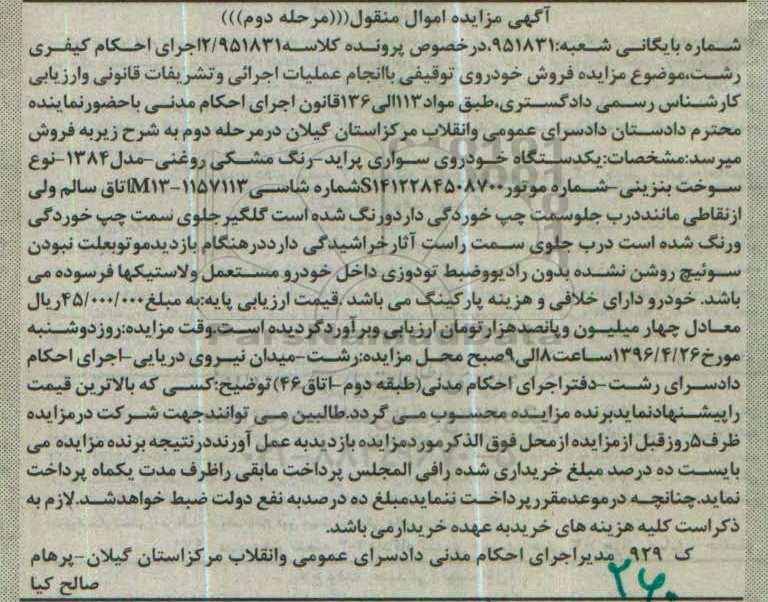 آگهی مزایده اموال منقول(((مرحله دوم)))
شماره بایگانی شعبه:۹۵۱۸۳۱،درخصوص پرونده کلاسه۲/۹۵۱۸۳۱اجرای احکام کیفری
رشت،موضوع مزایده فروش خودروی توقیفی باانجام عملیات اجرائی وتشریفات قانونی وارزیابی
کارشناس رسمی دادگستری،طبق مواد۱۱۳الی۱۳۶قانون اجرای احکام مدنی باحضورنماینده
محترم دادستان دادسرای عمومی وانقلاب مرکزاستان گیلان درمرحله دوم به شرح زیربه فروش
میرسد:مشخصات:یکدستگاه خودروی سواری پراید-رنگ مشکی روغنی-مدل۱۳۸۴-نوع
سوخت بنزینی-شماره موتور۰۰S۱۴۱۲۲۸۴۵۰۸۷شماره شاسی۱۱۵۷۱۱۳-M۱۳اتاق سالم ولی
ازنقاطی ماننددرب جلوسمت چپ خوردگی داردورنگ شده است گلگیرجلوی سمت چپ خوردگی
ورنگ شده است درب جلوی سمت راست آثارخراشیدگی دارددرهنگام بازدیدموتوبعلت نبودن
سوئیچ روشن نشده بدون رادیووضبط تودوزی داخل خودرو مستعمل ولاستیکها فرسوده می
باشد. خودرو دارای خلافی و هزینه پارکینگ می باشد .قیمت ارزیابی پایه:به مبلغ۴۵/۰۰۰/۰۰۰ریال
معادل چهار میلیون وپانصدهزارتومان ارزیابی وبرآوردگردیده است.وقت مزایده:روزدوشنبه
مورخ۱۳۹۶/۴/۲۶ساعت۸الی۹صبح محل مزایده:رشت-میدان نیروی دریایی-اجرای احکام
دادسرای رشت-دفتراجرای احکام مدنی(طبقه دوم-اتاق۴۶)توضیح:کسی که بالاترین قیمت
راپیشنهادنمایدبرنده مزایده محسوب می گردد.طالبین می توانندجهت شرکت درمزایده
ظرف۵روزقبل ازمزایده ازمحل فوق الذکرموردمزایده بازدیدبه عمل آورنددرنتیجه برنده مزایده می
بایست ده درصد مبلغ خریداری شده رافی المجلس پرداخت مابقی راظرف مدت یکماه پرداخت
نماید.چنانچه درموعدمقررپرداخت ننمایدمبلغ ده درصدبه نفع دولت ضبط خواهدشد.لازم به
ذکراست کلیه هزینه های خریدبه عهده خریدارمی باشد.
ک ۹۲۹ مدیراجرای احکام مدنی دادسرای عمومی وانقلاب مرکزاستان گیلان-پرهام
صالح کیا
ParsNamadData